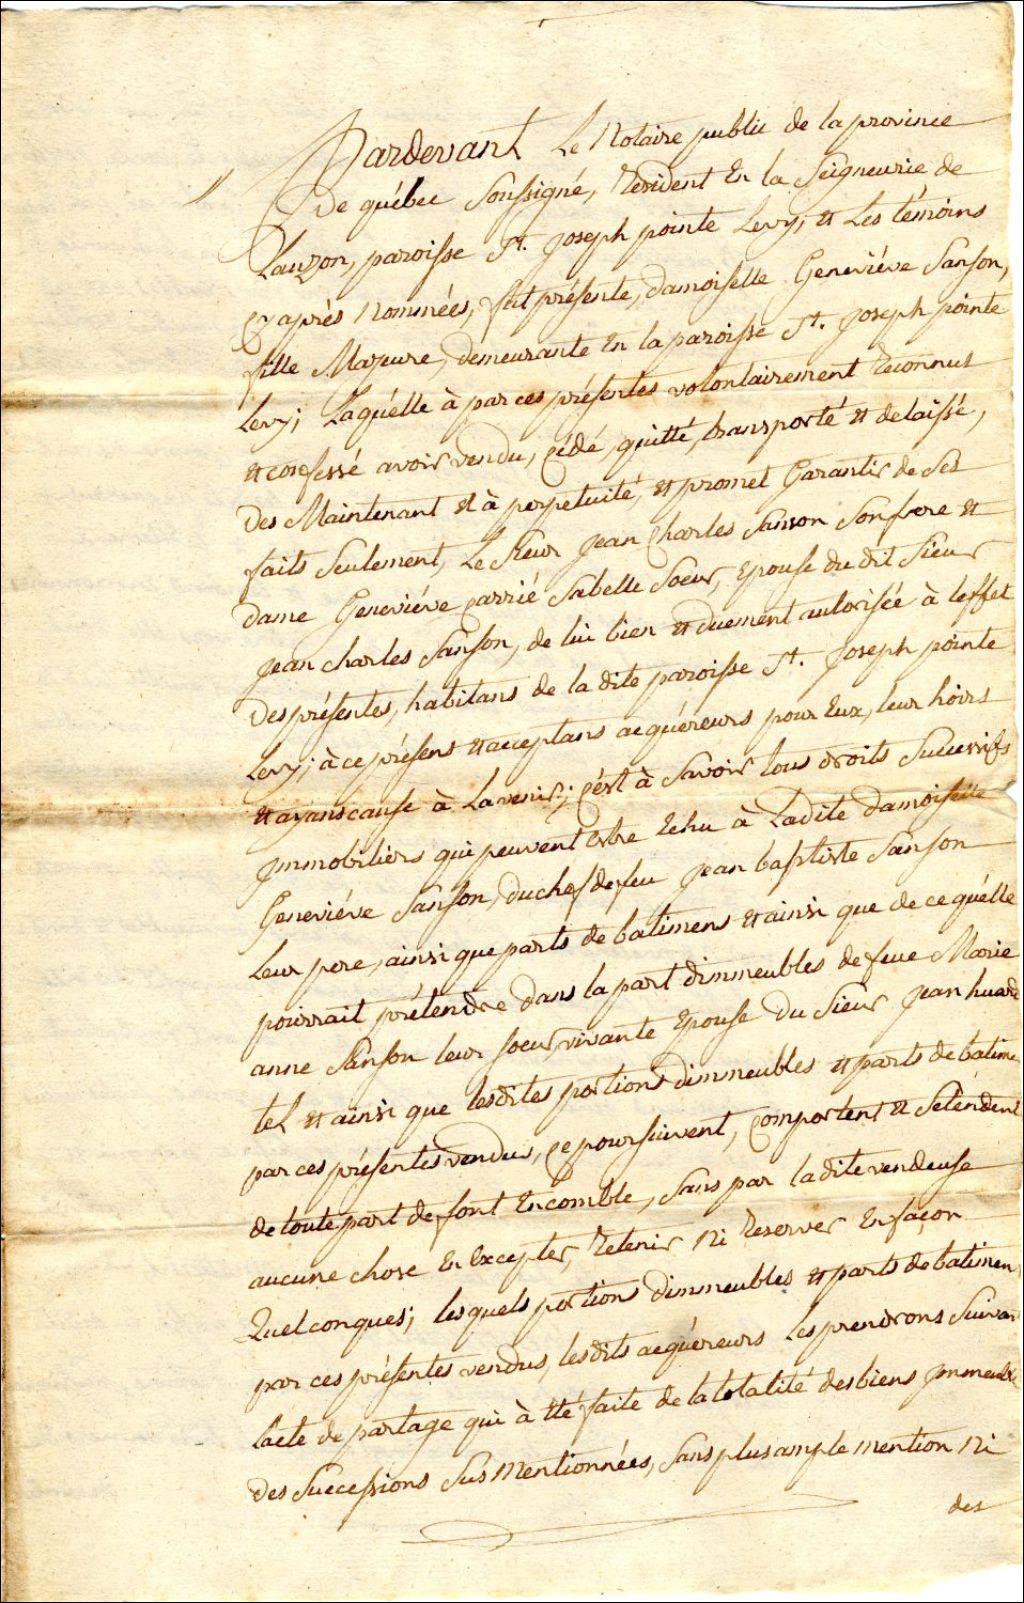 Pardevant Le Notaire public de la province
De québec Soussigné, Resident En la Seigneurie de
Lauzon, paroisse St. Joseph pointe Levy, et Les témoins
Cy après Nommées, fut présente, damoiselle Geneviéve Sanson,
fille Majeure, demeurante En la paroisse St. Joseph pointe
Levy; Laquélle à par ces présentes volontairement Reconnut
et confessé avoir vendu, Cédé, quitté, transporté et delaissé,
Des Maintenant et à perpetuité, et promet Garantir de Ses
faits Seulement, Le Sieur Jean Charles Sanson Son frere et
dame Geneviéve Carrié Sa belle Soeur, Epouse du dit Sieur
Jean charles Sanson, de lui bien et duement autorisée à leffet
Des présentes, habitans de la dite paroisse St. Joseph pointe
Levy; à ce présens et acceptans acquéreurs pour Eux, leur hoirs
et ayans cause à Lavenir; C'ést à Savoir tous droits Successifs
Immobiliers qui peuvent Estre Echu à Ladite damoiselle
Geneviéve Sanson, du chef de feu Jean baptiste Sanson
Leur pere, ainsi que parts de batimens et ainsi que de ce quélle
pourrait prétendre dans la part dimmeubles de feue Marie
anne Sanson leur soeur, vivante Epouse du Sieur Jean huard
tel et ainsi que lesdites portions dimmeubles et parts de batime
par ces présentes vendus, Ce poursuivent, Comportent et Seténdent
de toute part de font En comble, Sans par la dite vendeuse
aucune chose En Excepter, Retenir Ni Reserver En façon
Quelconques; lesquels portions dimmeubles et parts de batimen
par ces présentes vendus, lesdits acquéreurs Les prendrons Suivan
lacte de partage qui à été faite de la totalité des biens Immeuble
des Successions Sus Mentionnées, Sans plus ample mention Ni
des